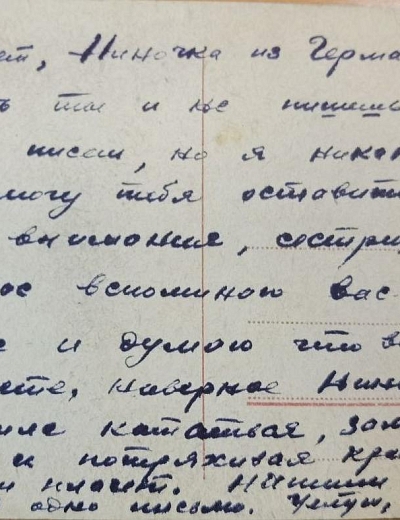 ет, Ниночка из Герма
ь ты и не пишиш
писал, но я никак
могу тибя оставит
внимания, сестри
ос вспоминаю вас
с и думаю что в
ете, наверное Нин
кататься, зам
и потряхивая кра
и плачет. Напиши
одно письмо. Целую,